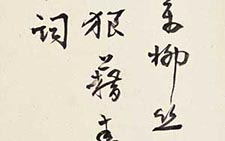 柳丝
狼藉
词